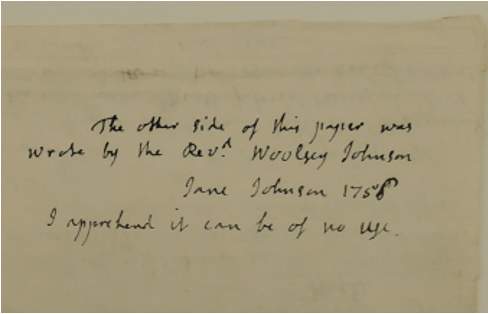 The other side of this paper was
wrote by the Rev.d Woolsey Johnson
Jane Johnson 1756
I apprehend it can be of no use.